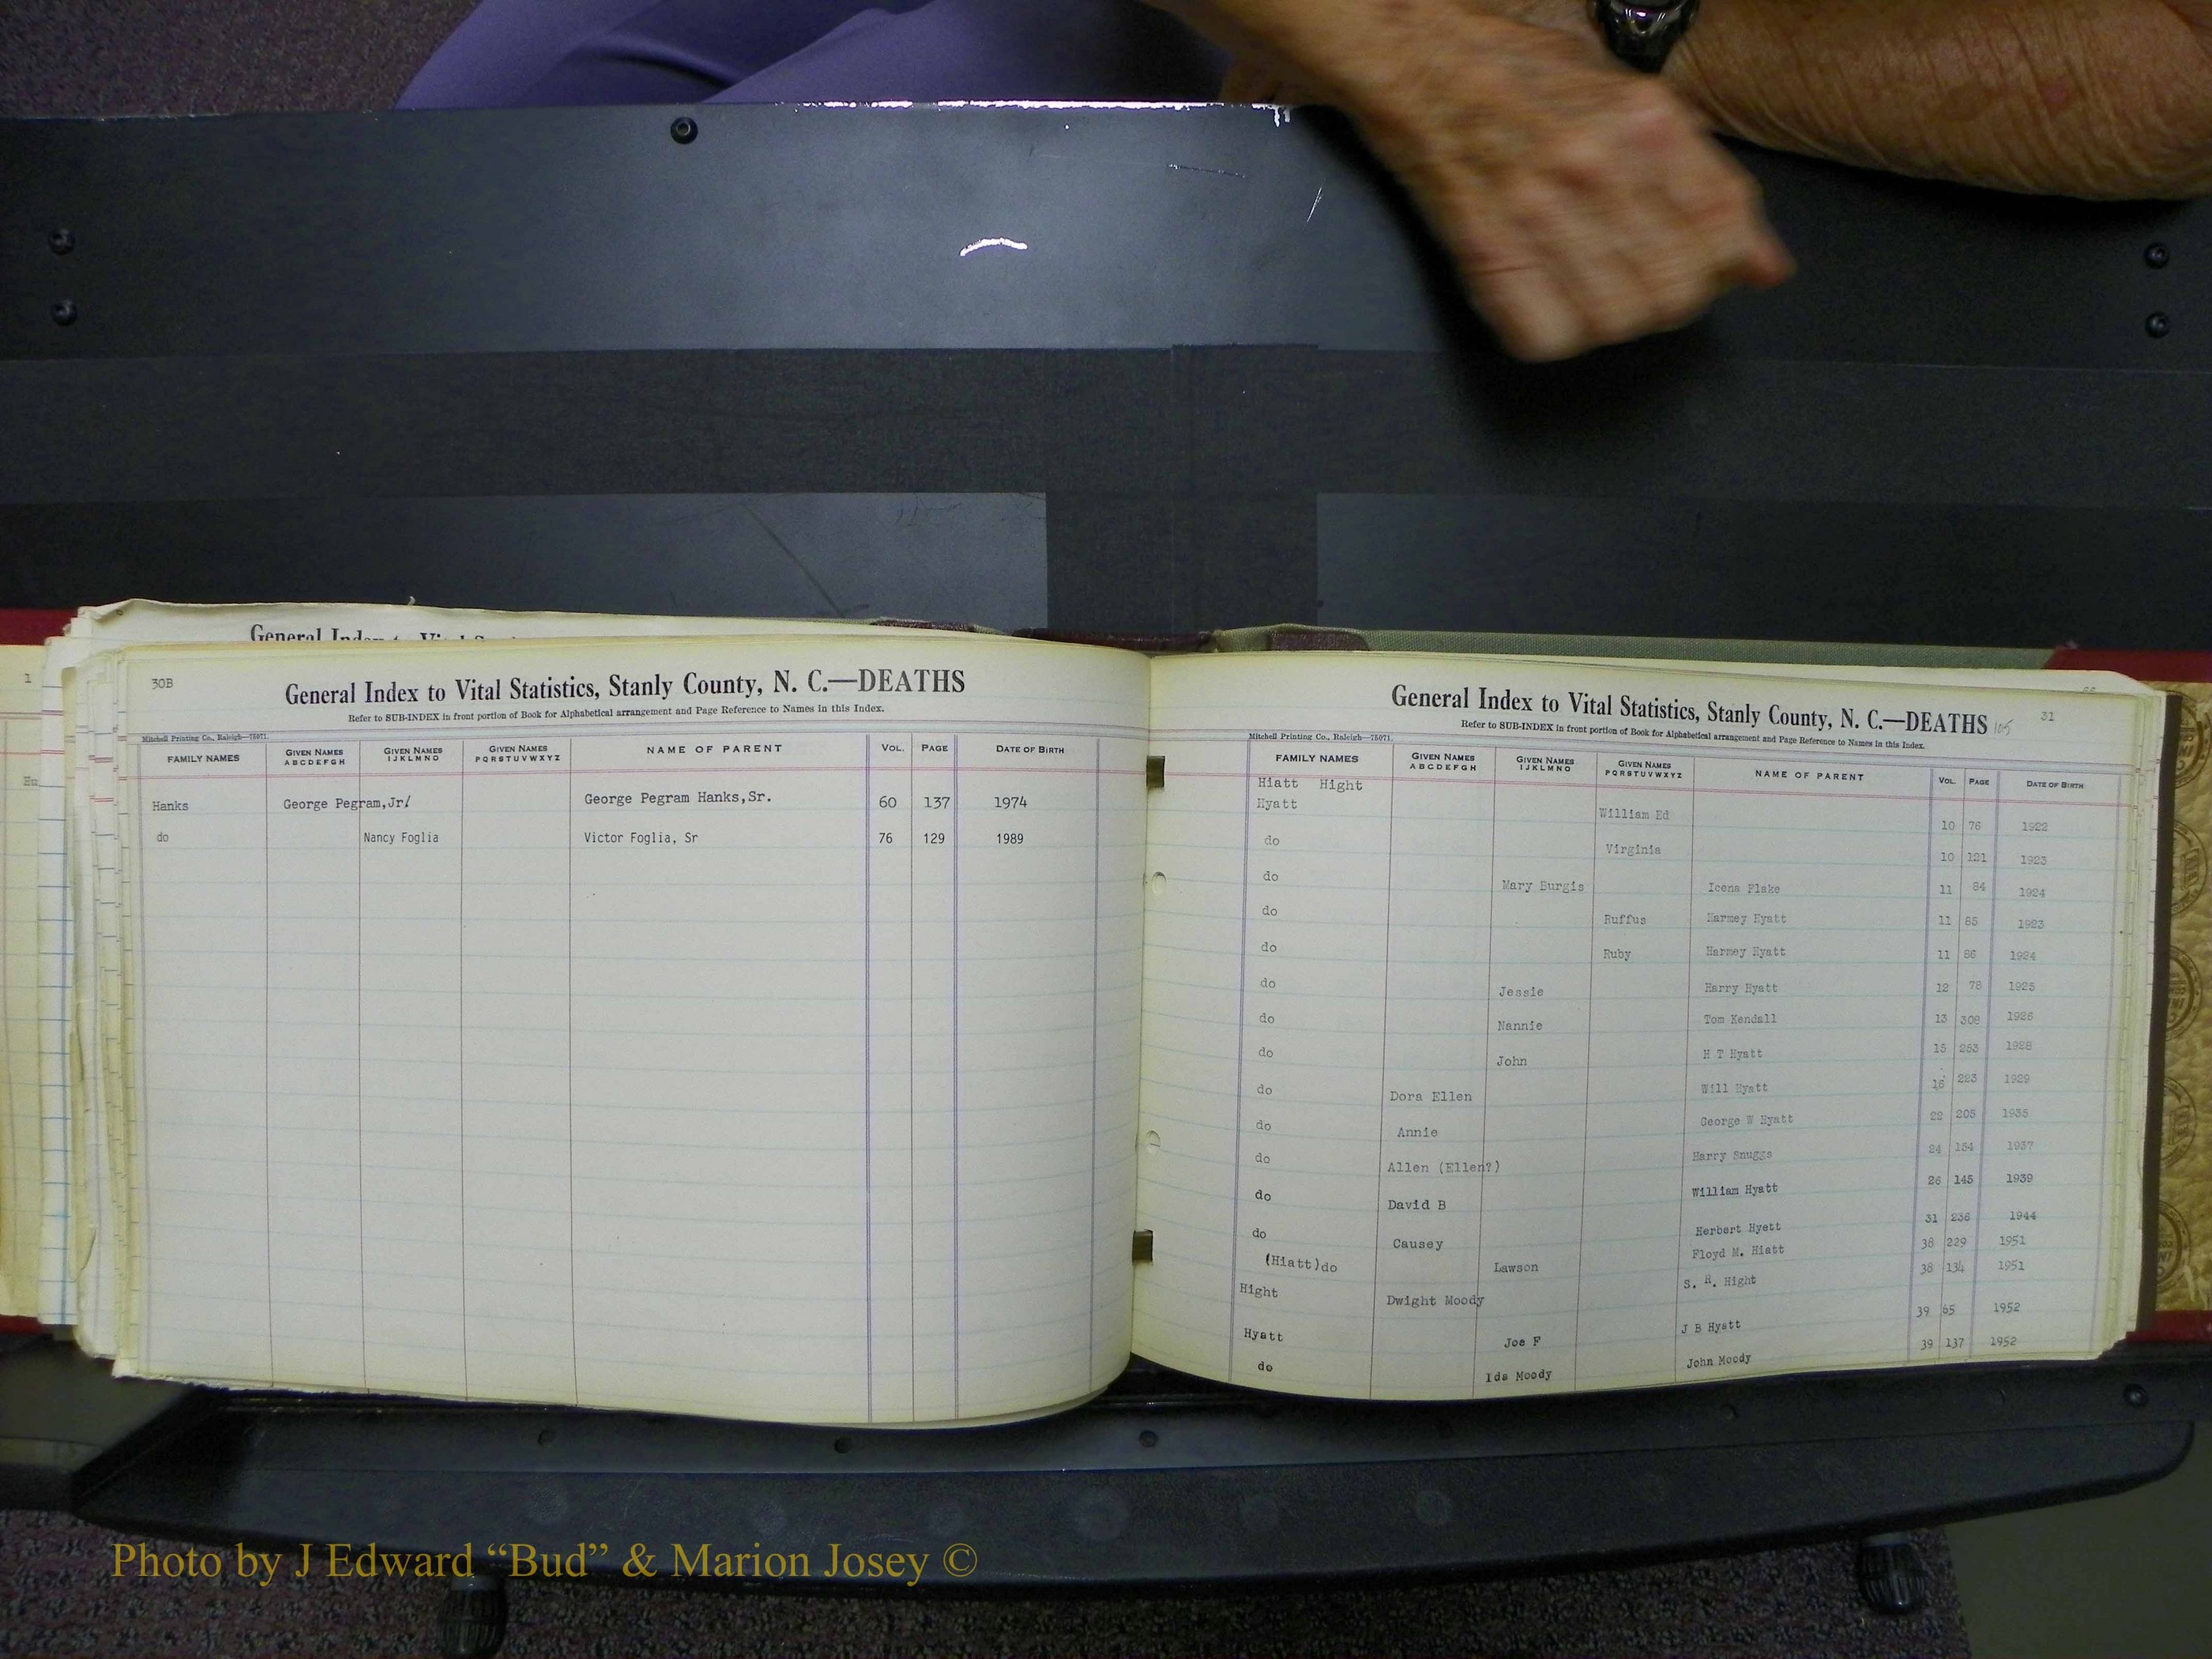 General Index to Vital S
1
Hu
30B
General Index to Vital Statistics, Stanly County, N. C.—DEATHS
Refer to SUB-INDEX in front portion of Book for Alphabetical arrangement and Page Reference to Names in this Index.
Mitchell Printing Co., Raleigh—75071.
FAMILY NAMES GIVEN NAMES ABCDEFGH GIVEN NAMES IJKLMNO GIVEN NAMES PQRSTUVWXYZ NAME OF PARENT VOL. PAGE DATE OF BIRTH
Hanks George Pegram,Jr/ George Pegram Hanks,Sr. 60 137 1974
do Nancy Foglia Victor Foglia, Sr 76 129 1989
31
General Index to Vital Statistics, Stanly County, N. C.—DEATHS 105
Refer to SUB-INDEX in front portion of Book for Alphabetical arrangement and Page Reference to Names in this Index.
Mitchell Printing Co., Raleigh—75071.
FAMILY NAMES GIVEN NAMES ABCDEFGH GIVEN NAMES IJKLMNO GIVEN NAMES PQRSTUVWXYZ NAME OF PARENT VOL. PAGE DATE OF BIRTH
Hiatt Hight
Hyatt William Ed 10 76 1922
do Virginia 10 121 1923
do Mary Burgis Icena Flake 11 84 1924
do Ruffus Harmey Hyatt 11 85 1923
do Ruby Harmey Hyatt 11 86 1924
do Jessie Harry Hyatt 12 78 1925
do Nannie Tom Kendall 13 308 1926
do John H T Hyatt 15 253 1928
do Dora Ellen Will Hyatt 16 223 1929
do Annie George W Hyatt 22 205 1935
do Allen (Ellen?) Harry Snuggs 24 154 1937
do David B William Hyatt 26 145 1939
do Causey Herbert Hyett 31 236 1944
(Hiatt)do Lawson Floyd M. Hiatt 38 229 1951
Hight Dwight Moody S. R. Hight 38 134 1951
Hyatt Joe F J B Hyatt 39 65 1952
do Ida Moody John Moody 39 137 1952
Photo by J Edward “Bud” & Marion Josey ©